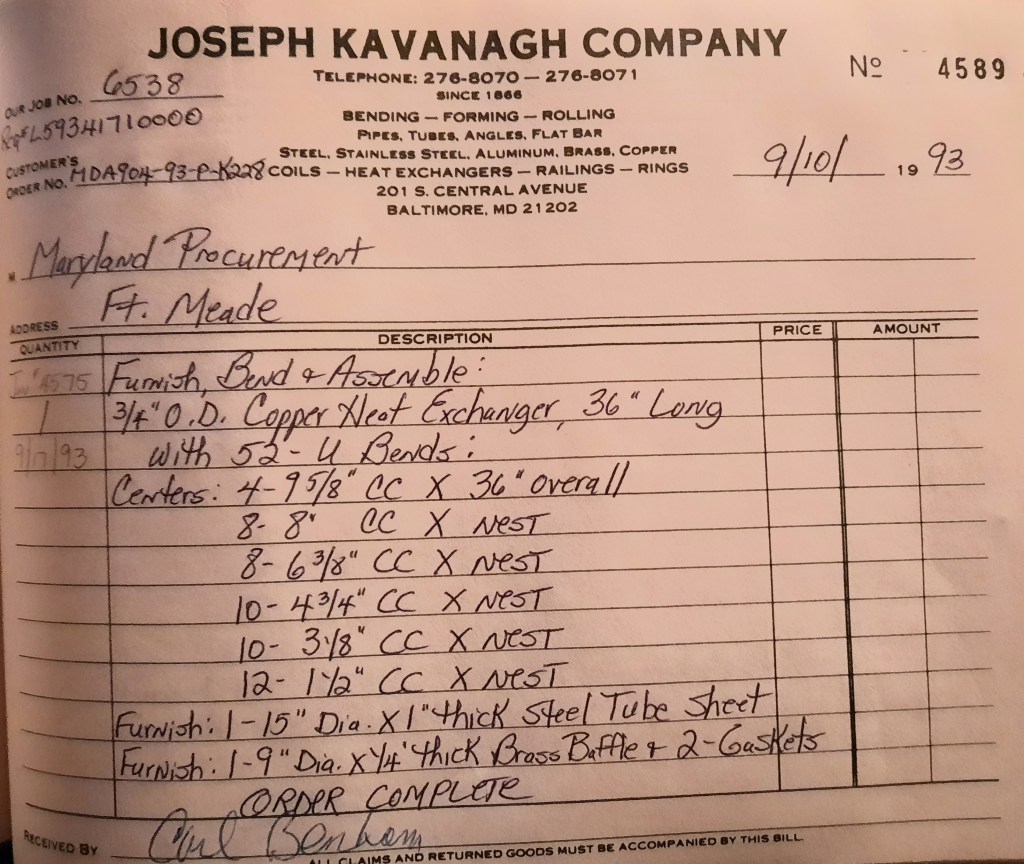 JOSEPH KAVANAGH COMPANY
Nº 4589
TELEPHONE: 276-8070 — 276-8071
SINCE 1866
OUR JOB NO. 6538
BENDING — FORMING — ROLLING
Req# L59341710000
PIPES, TUBES, ANGLES, FLAT BAR
STEEL, STAINLESS STEEL, ALUMINUM, BRASS, COPPER
CUSTOMER'S ORDER NO. MDA904-93-P-K228
COILS — HEAT EXCHANGERS — RAILINGS — RINGS
9/10/ 19 93
201 S. CENTRAL AVENUE
BALTIMORE, MD 21202
M Maryland Procurement
ADDRESS Ft. Meade
QUANTITY DESCRIPTION PRICE AMOUNT
Inv# 4575 Furnish, Bend & Assemble:
1 3/4" O.D. Copper Heat Exchanger, 36" Long
9/17/93 with 52-U Bends:
Centers: 4-9 5/8" CC X 36" overall
8- 8" CC X NEST
8- 6 3/8" CC X NEST
10- 4 3/4" CC X NEST
10- 3 1/8" CC X NEST
12- 1 1/2" CC X NEST
Furnish: 1-15" Dia. X 1" thick Steel Tube Sheet
Furnish: 1-9" Dia. X 1/4" thick Brass Baffle & 2-Gaskets
ORDER COMPLETE
RECEIVED BY Carl Benham
ALL CLAIMS AND RETURNED GOODS MUST BE ACCOMPANIED BY THIS BILL.